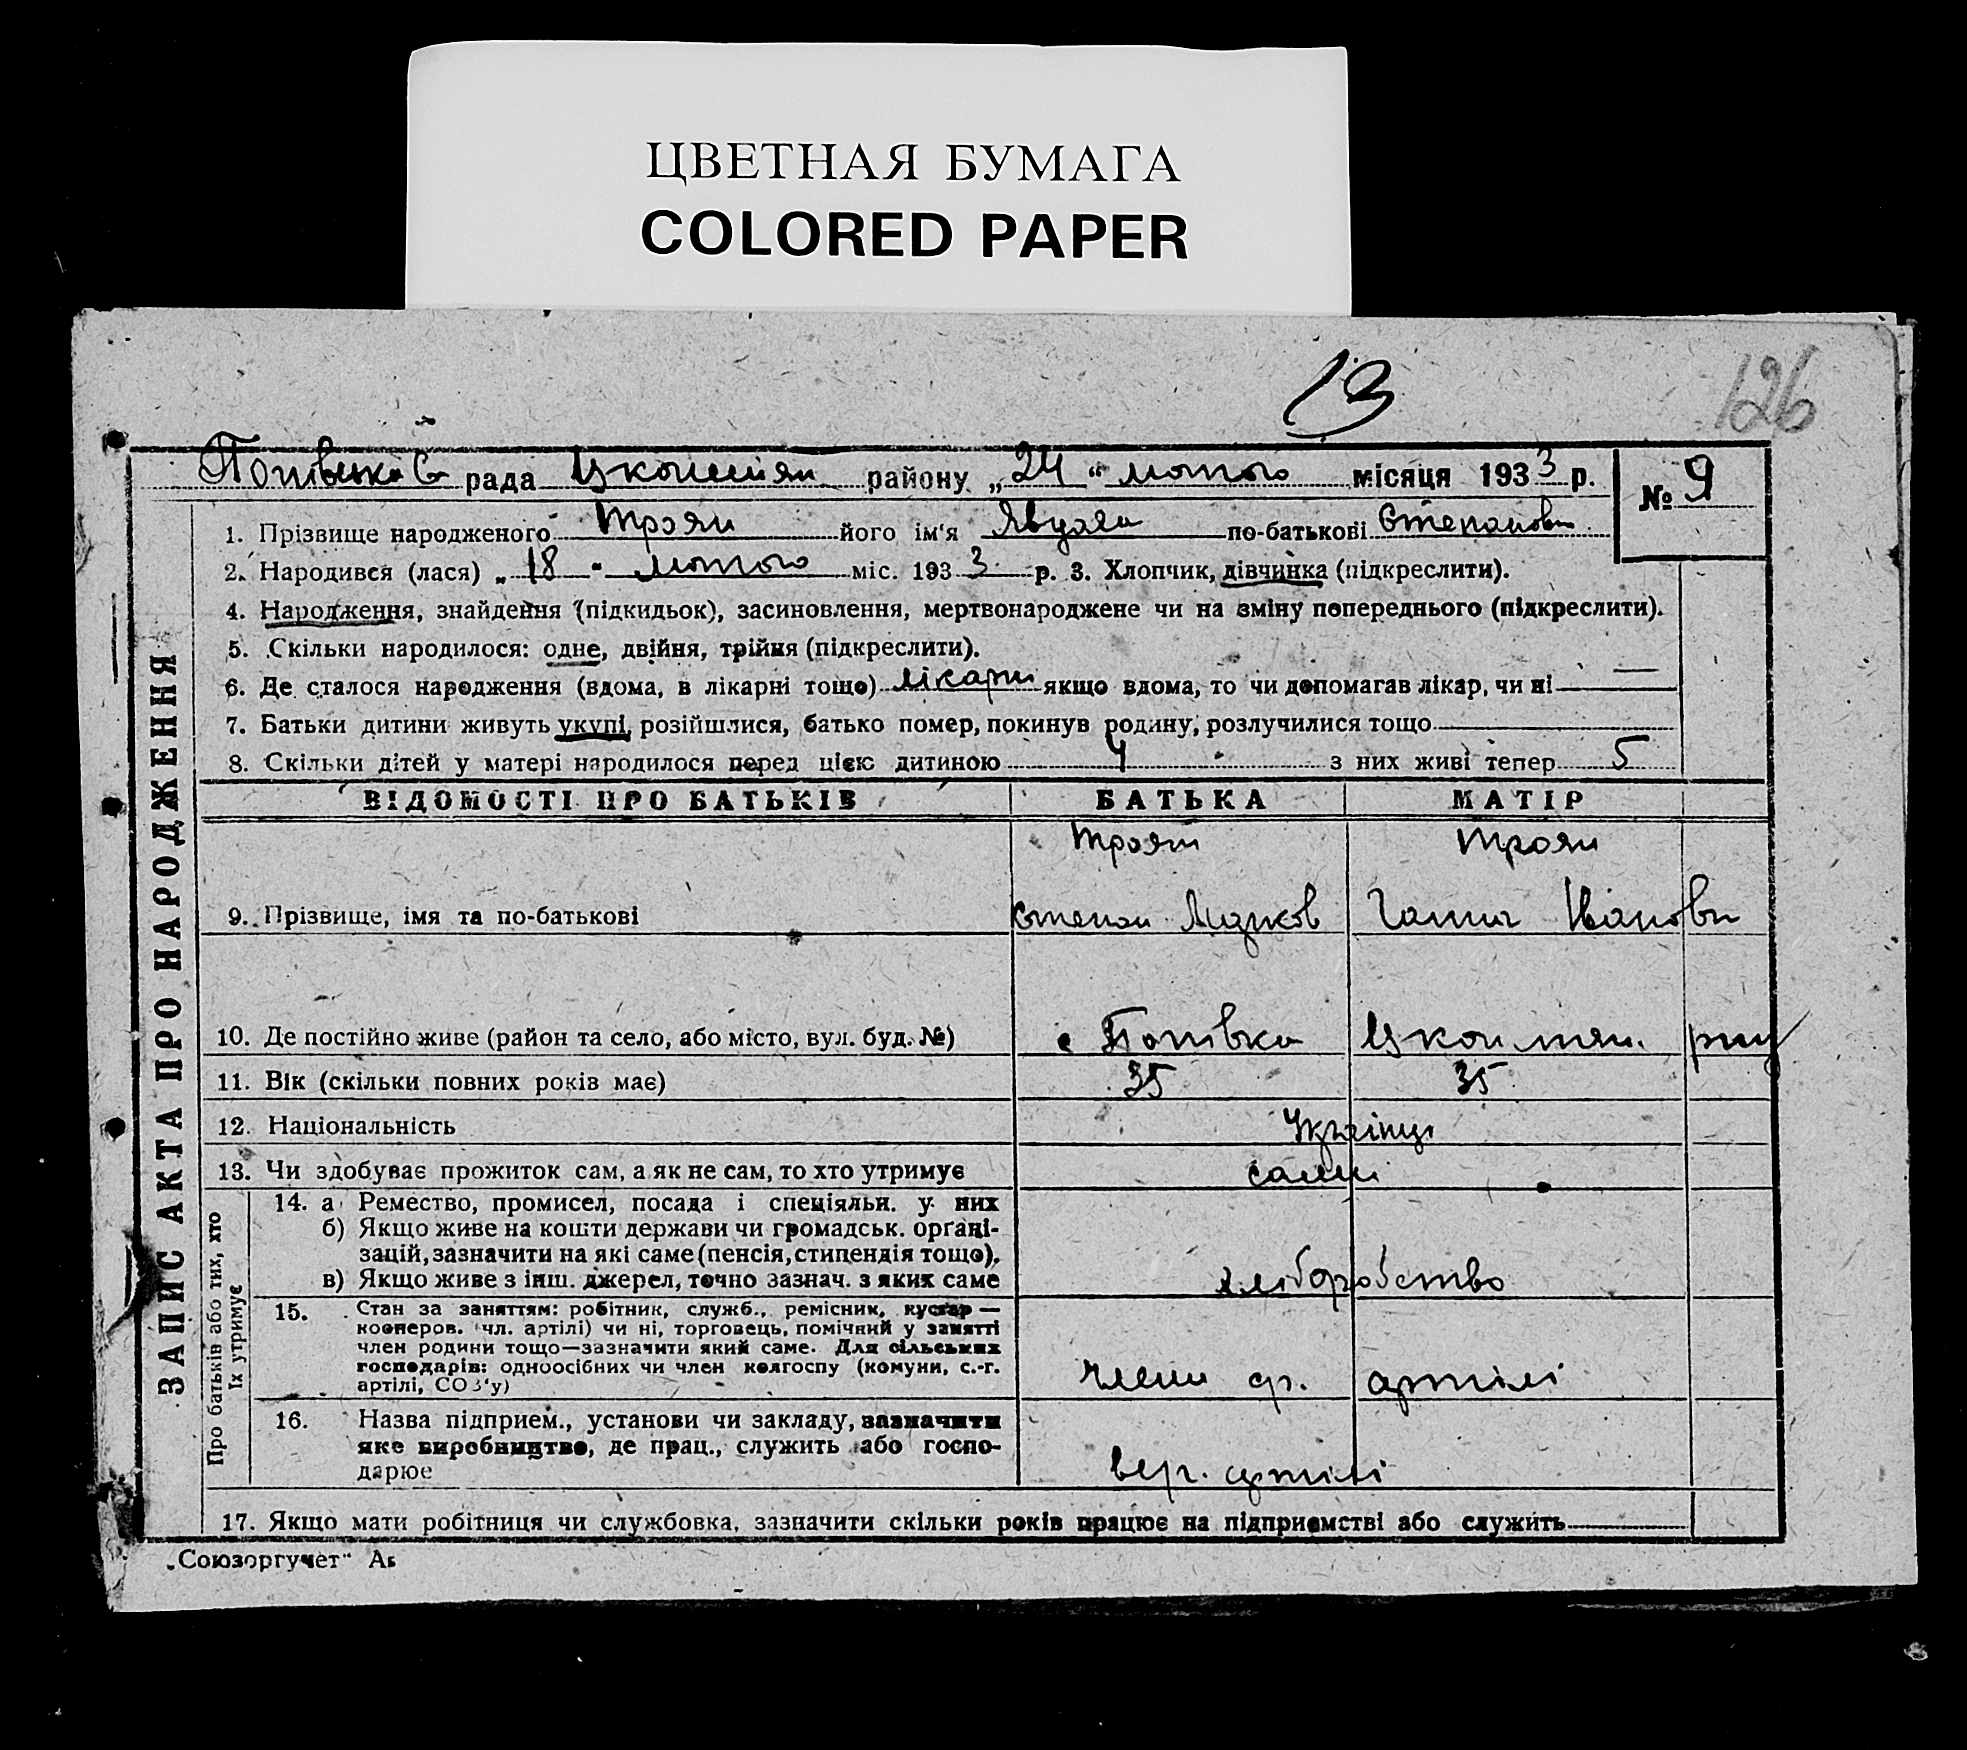 ЦВЕТНАЯ БУМАГА
COLORED PAPER
13
126
рада району „24“ лютого місяця 1933 р.
№ 9
1. Прізвище народженого Троян його ім'я Явдоха по-батькові Степановн
2. Народився (лася) „18" лютого міс. 193 3 р. 3. Хлопчик, дівчинка (підкреслити).
4. Народження, знайдення (підкидьок), засиновлення, мертвонароджене чи на зміну попереднього (підкреслити).
5. Скільки народилося: одне, двійня, трійня (підкреслити).
6. Де сталося народження (вдома, в лікарні тощо) лікарні якщо вдома, то чи допомагав лікар, чи ні —
7. Батьки дитини живуть укупі, розійшлися, батько помер, покинув родину, розлучилися тощо
8. Скільки дітей у матері народилося перед цією дитиною 4 з них живі тепер 5
ВІДОМОСТІ ПРО БАТЬКІВ БАТЬКА МАТІР
Троян Троян
9. Прізвище, імя та по-батькові Степан Марков Ганна Івановн
10. Де постійно живе (район та село, або місто, вул. буд. №) с Попівка
11. Вік (скільки повних років має) 35 35
12. Національність Українці
13. Чи здобуває прожиток сам, а як не сам, то хто утримує самі
14. а Ремество, промисел, посада і спеціяльн. у них
б) Якщо живе на кошти держави чи громадськ. орґані-
зацій, зазначити на які саме (пенсія, стипендія тощо).
в) Якщо живе з інш. джерел, точно зазнач. з яких саме хліборобство
15. Стан за заняттям: робітник, служб., ремісник, кустар —
коонеров. чл. артілі) чи ні, торговець, помічний у занятті
член родини тощо—зазначити який саме. Для сільських
господарів: одноосібних чи член колгоспу (комуни, с.-г.
артілі, СОЗ'у) член ар. артілі
16. Назва підприєм., установи чи закладу, зазначити
яке виробництво, де прац., служить або госпо-
дарює артілі
17. Якщо мати робітниця чи службовка, зазначити скільки років працює на підприємстві або служить
ЗАПИС АКТА ПРО НАРОДЖЕННЯ
Про батьків або тих, хто
їх утримує
„Союзоргучет"